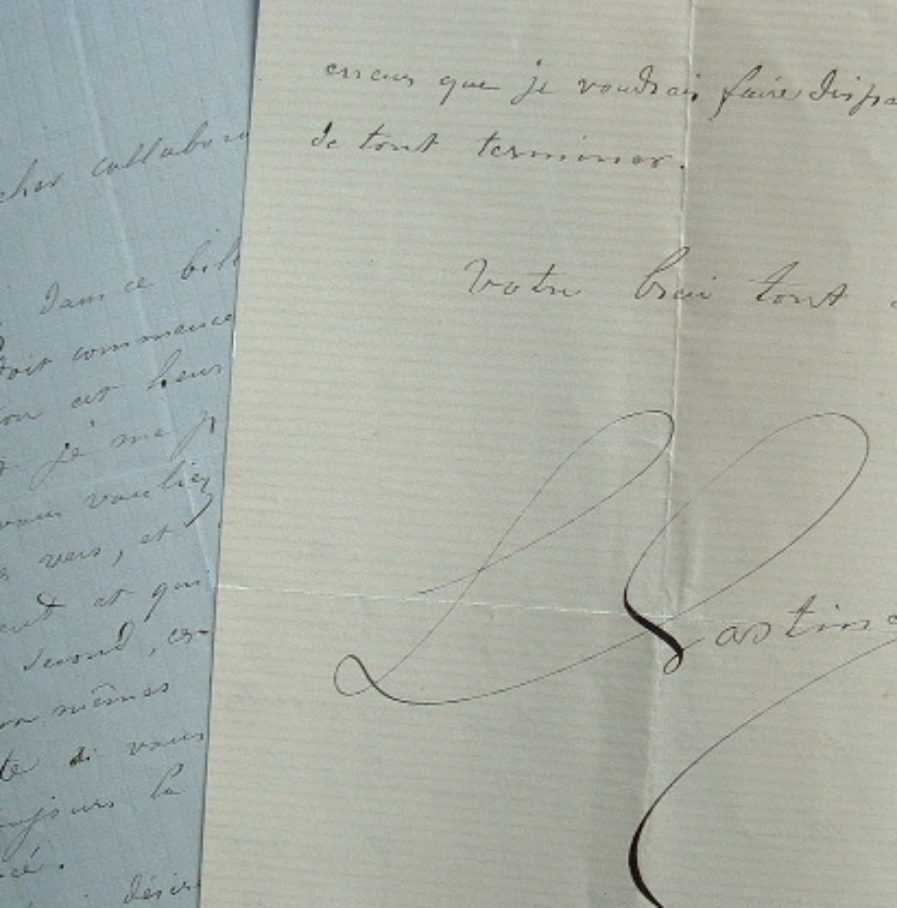 cher collabora
dans ce bill
doit commence
cet heur
je me p
vous vouliez
vers, et
et qui
second, ce
mêmes
te di vous
toujours la
cé.
désire
erreurs que je voudrais faire dispa
de tout terminer.
Votre bien tout
L Lastine